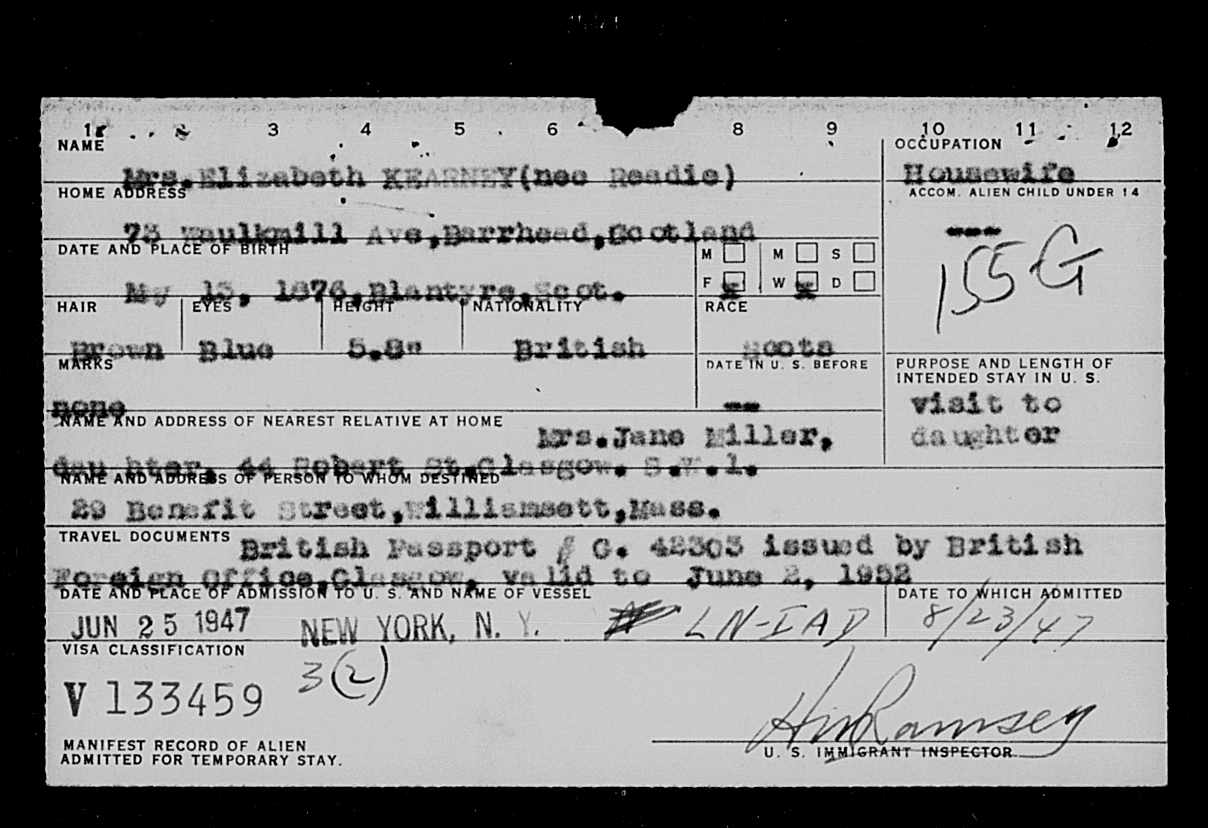 1 3 4 5 6 8 9 10 11 12
NAME OCCUPATION
Mrs.Elizabeth KEARNEY(nee Readie) Housewife
HOME ADDRESS ACCOM. ALIEN CHILD UNDER 14
73 Waulkmill Ave,Barrhead,Scotland ---
DATE AND PLACE OF BIRTH M M S
155-G
My 13, 1876,Blantyre,Scot. F x W x D
HAIR EYES HEIGHT NATIONALITY RACE
Brown Blue 5.8" British Scots
MARKS DATE IN U. S. BEFORE PURPOSE AND LENGTH OF
INTENDED STAY IN U. S.
none -- visit to
NAME AND ADDRESS OF NEAREST RELATIVE AT HOME
Mrs.Jane Miller, daughter
daughter, 44 Robert St.Glasgow. S.W.1.
NAME AND ADDRESS OF PERSON TO WHOM DESTINED
29 Benefit Street,Williamsett,Mass.
TRAVEL DOCUMENTS British Passport # C. 42303 issued by British
Foreign Office,Glasgow, valid to June 2, 1952
DATE AND PLACE OF ADMISSION TO U. S. AND NAME OF VESSEL DATE TO WHICH ADMITTED
JUN 25 1947 NEW YORK, N. Y. LN-IAD 8/23/47
VISA CLASSIFICATION
V 133459 3(2)
HWRamsey
MANIFEST RECORD OF ALIEN
U. S. IMMIGRANT INSPECTOR
ADMITTED FOR TEMPORARY STAY.